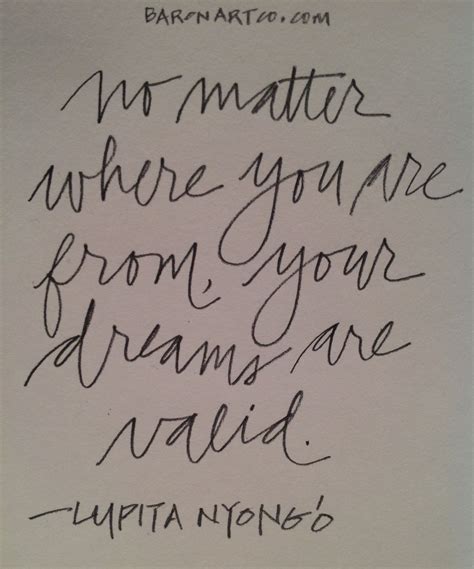 BARONARTCO.COM
no matter
where you are
from, your
dreams are
valid.
—LUPITA NYONG'O